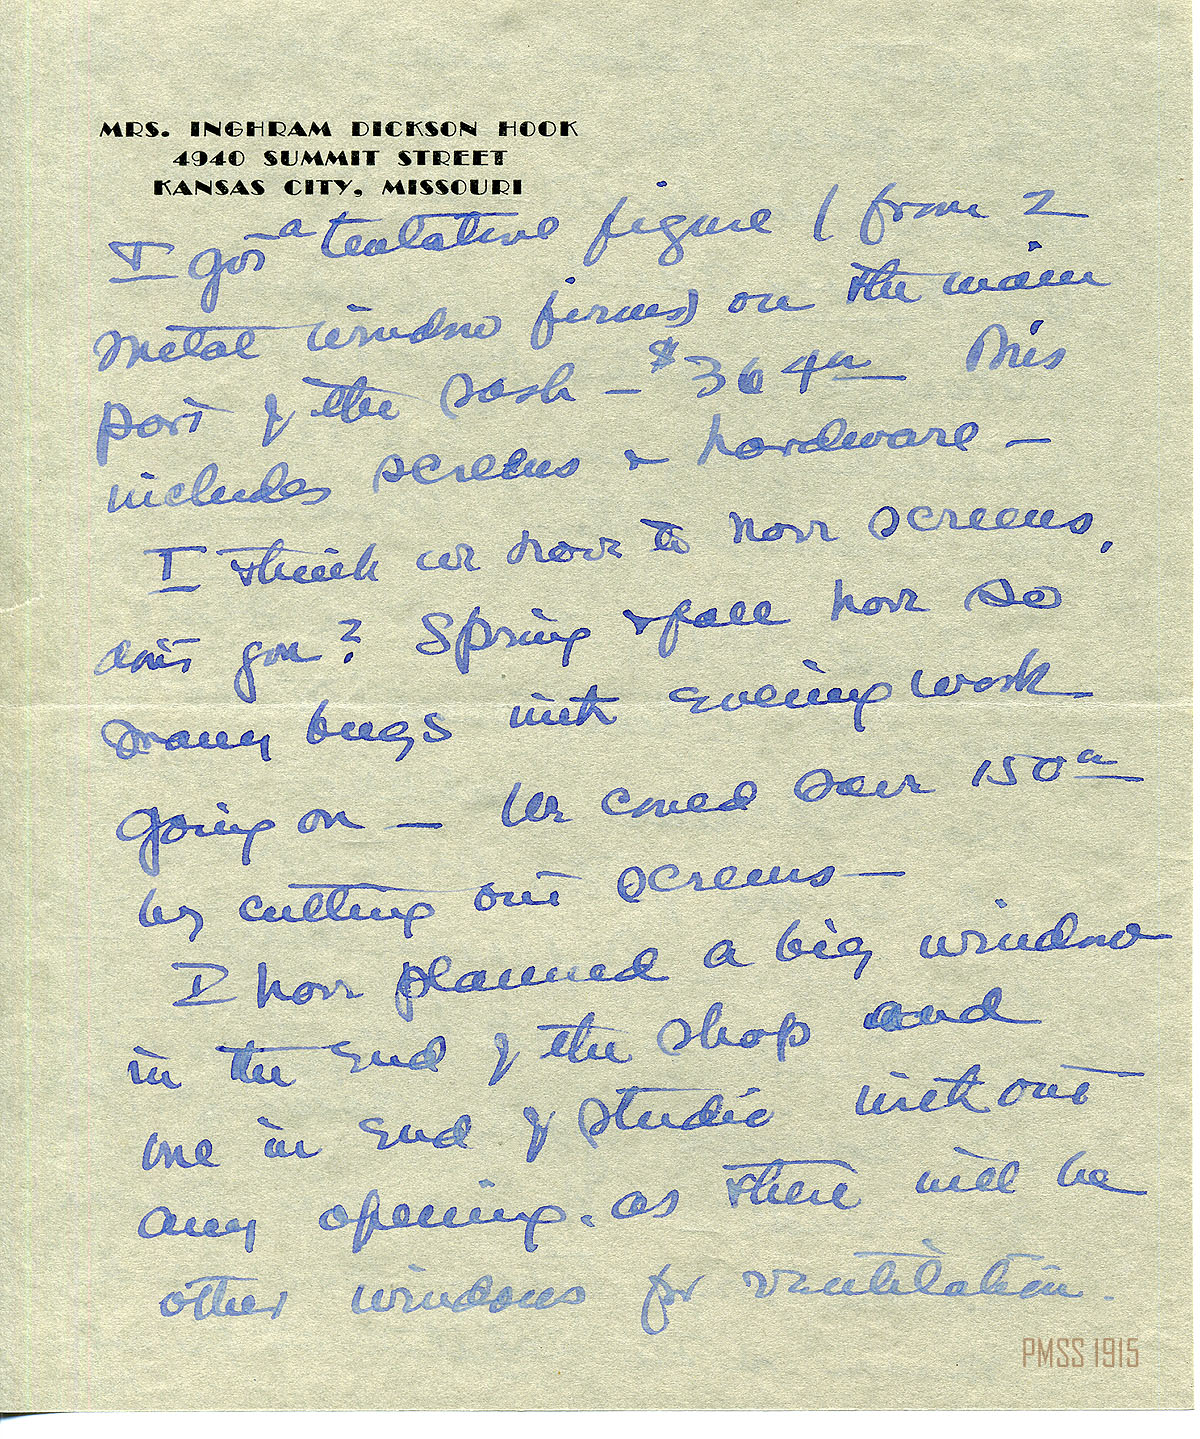 MRS. INGHRAM DICKSON HOOK
4940 SUMMIT STREET
KANSAS CITY, MISSOURI
I got a tentative figure (from 2
metal window firms) on the main
part of the sash — $364.00 This
includes screens & hardware —
I think we have to have screens,
don't you? Spring & fall have so
many bugs with evening work
going on — We could save 150.00
by cutting out screens —
I have planned a big window
in the end of the shop and
one in end of studio without
any opening. as there will be
other windows for ventilation.
PMSS 1915